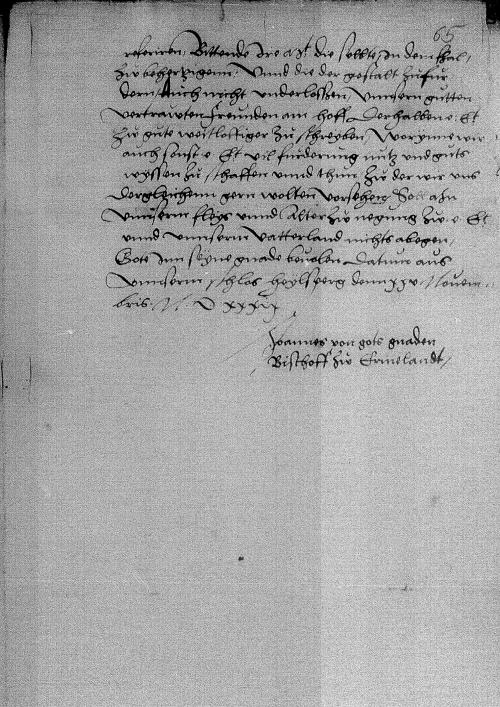 65
referiren. Bittende Ire a Et die selbte in dem fhal,
zw behertzigenn. Vnnd die der gestalt zufur
dern, Auch nicht vnderlossen, vnnsern gutten
vertrawten freunden am hoff Derhalben e Et
zu gute weitloftiger zu schreyben, Worynne wir
auch sonst e Et vil furderung nutz vnd guts
wyssen zu schaffen vnnd thun, zu der wir vns
dergleichenn gern wolten vorsehen, Soll ahn
vnnserm fleys vnnd Alter zw negung zw e Et
vnnd vnnserm vatterland nichts abegen,
Gote Inn seyne gnade beuolen. Datum aus
vnnserm schlos heylsperg denn xxv Nouem
bris. M D xxxix
Joannes von gots gnaden
Bischoff zw Ermelandt,